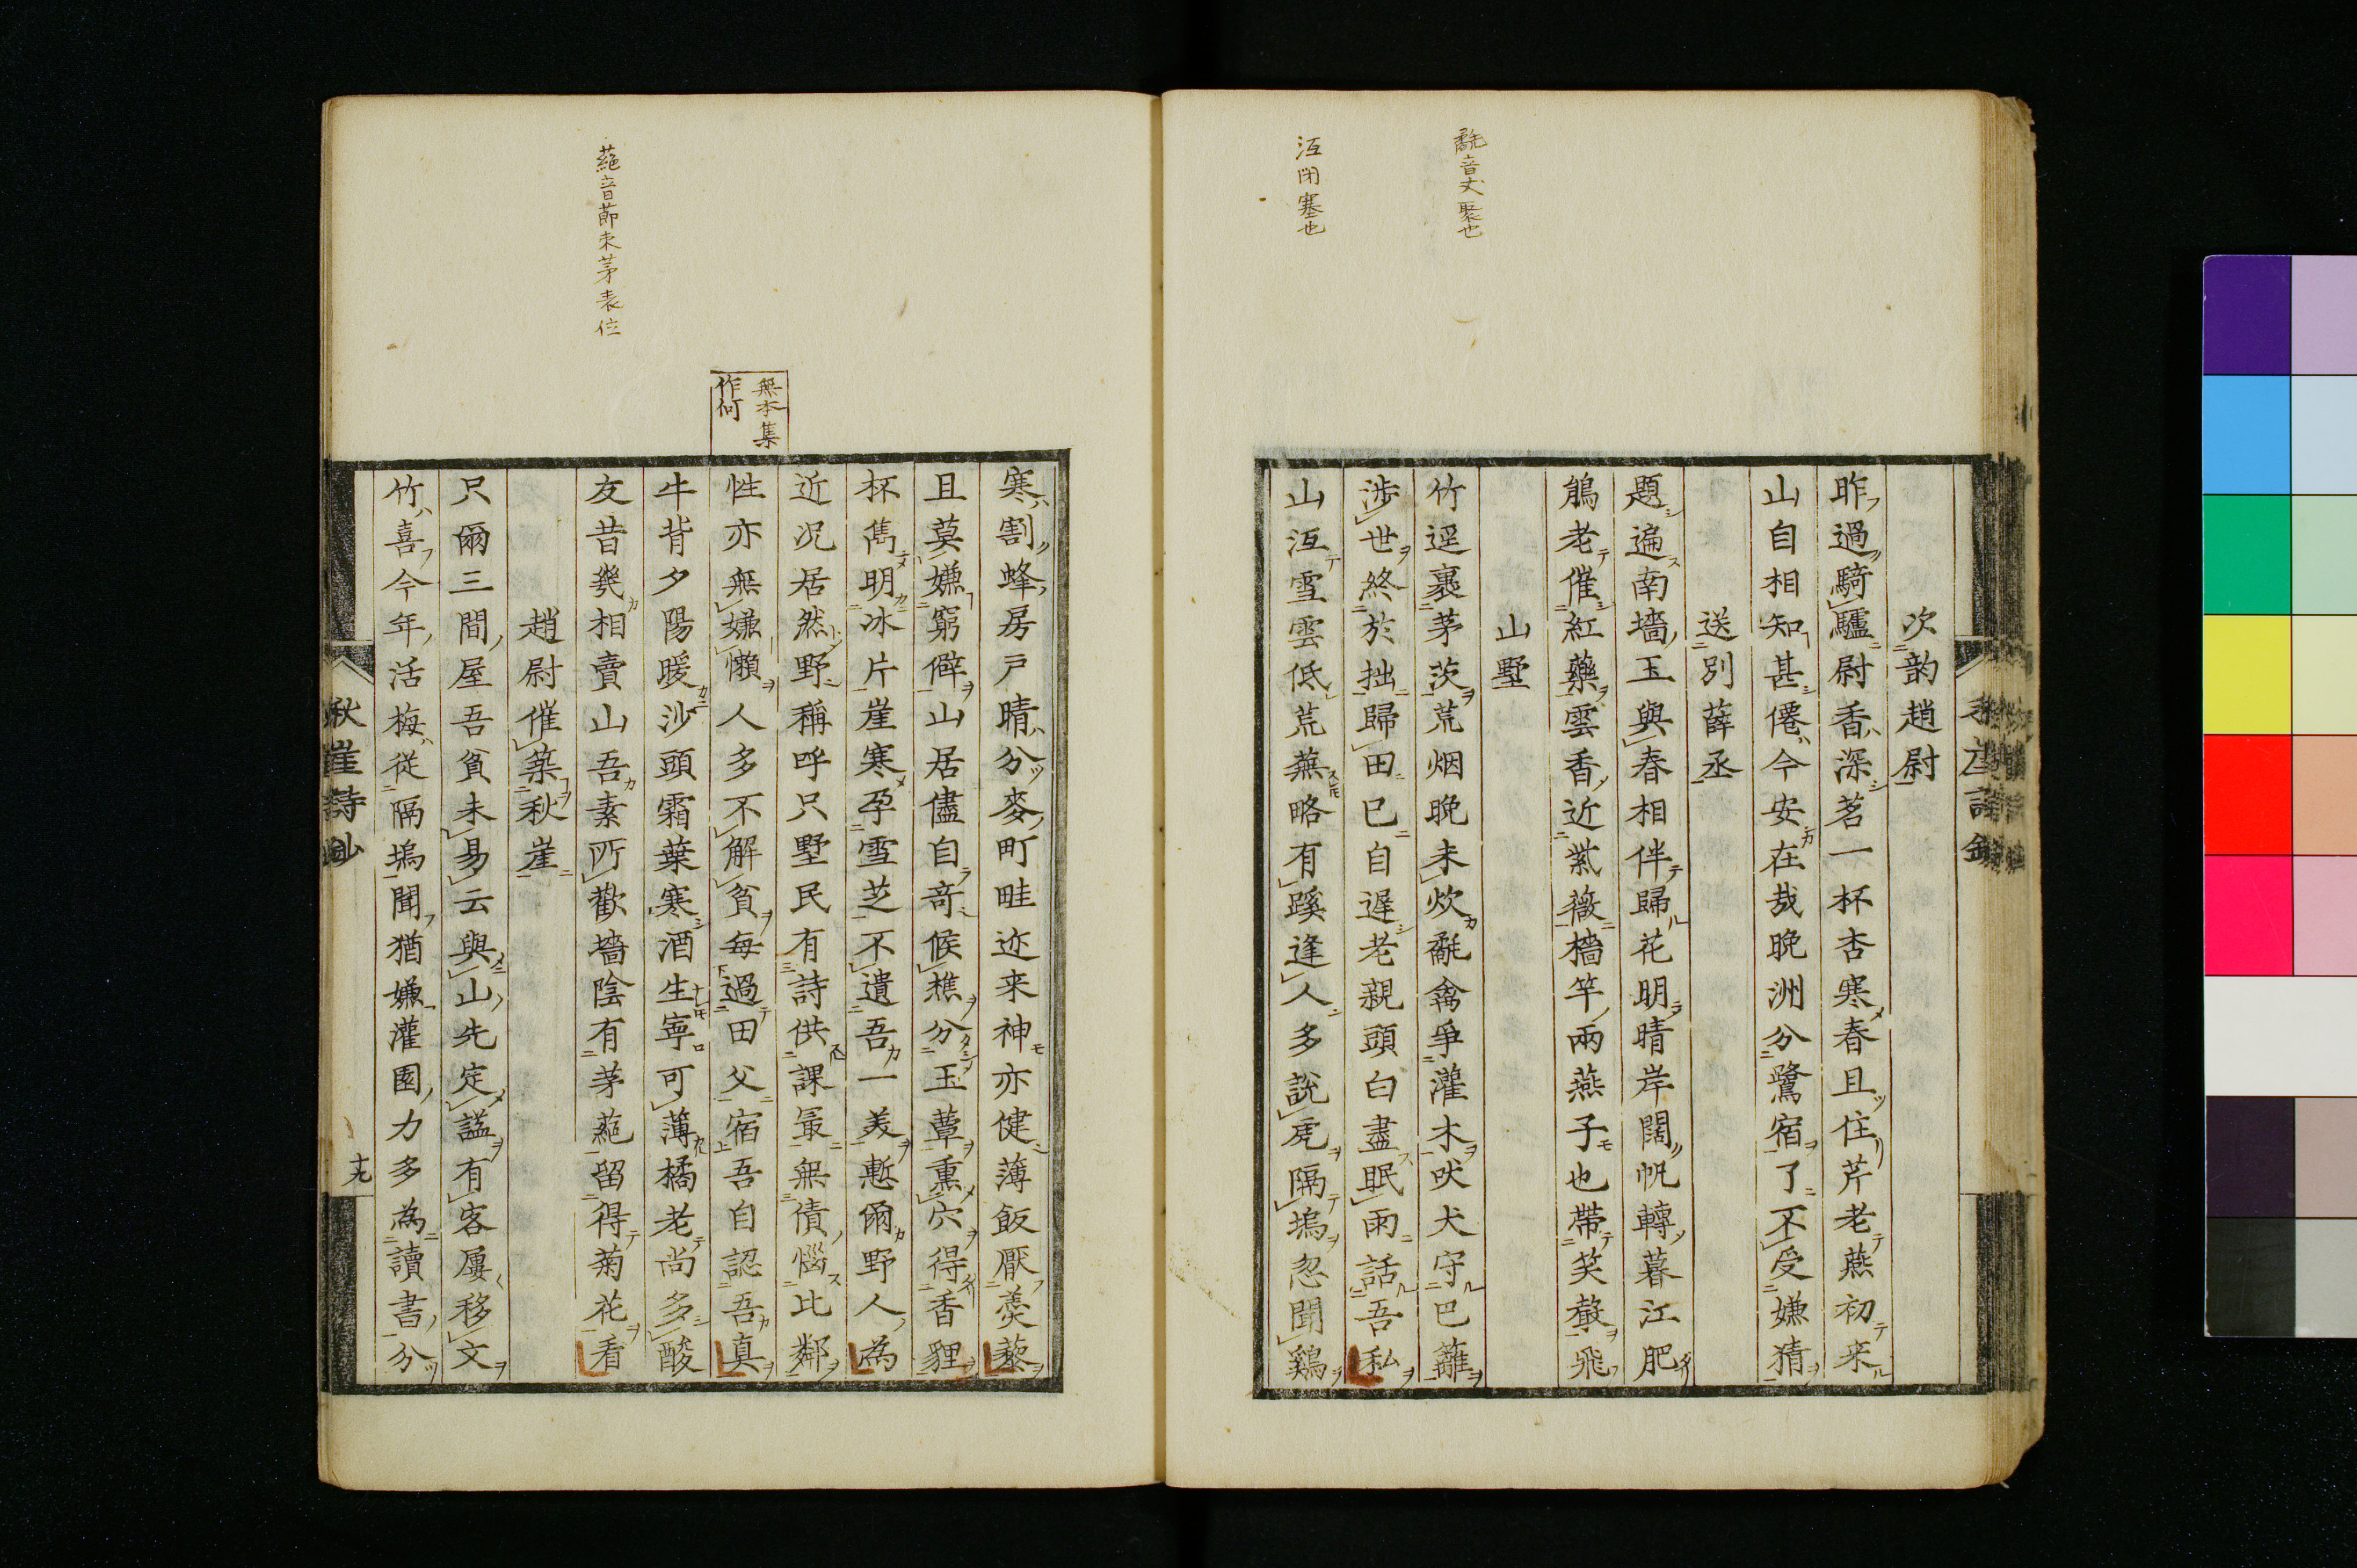 次韵趙尉
昨過騎驢尉香深茗一杯杏寒春且住芹老燕初来
山自相知甚僊今安在哉晩洲分鷺宿了不受嫌猜
送別薛丞
題遍南墻玉與春相伴歸花明晴岸闊帆轉暮江肥
鵑老催紅藥雲香近紫薇檣竿兩燕子也帶笑聲飛
山墅
竹逕裹茅茨荒烟晩未炊毳禽爭灌木吠犬守巴籬
渉世終於拙歸田已自遲老親頭白盡眠雨話吾私
山冱雪雲低荒蕪略有蹊逢人多說虎隔塢忽聞鷄
冱閉塞也
寒割蜂房戸晴分麥町畦迩来神亦健薄飯厭羮藜
且莫嫌窮僻山居儘自竒候樵分玉蕈熏穴得香貍
杯雋明冰片崖寒孕雪芝不遺吾一美慙爾野人為
近况居然野稱呼只墅民有詩供課最無債惱比鄰
性亦無嫌懶人多不解貧毎過田父宿吾自認吾真
牛背夕陽暖沙頭霜葉寒酒生寧可薄橘老尚多酸
友昔幾相賣山吾素所歡墻陰有茅蕝留得菊花看
趙尉催築秋崖
只爾三間屋吾貧未易云與山先定謚有客屢移文
竹喜今年活梅従隔塢聞猶嫌灌園力多為讀書分
無本集
作何
蕝音莭束茅表位
秋崖詩鈔
十九